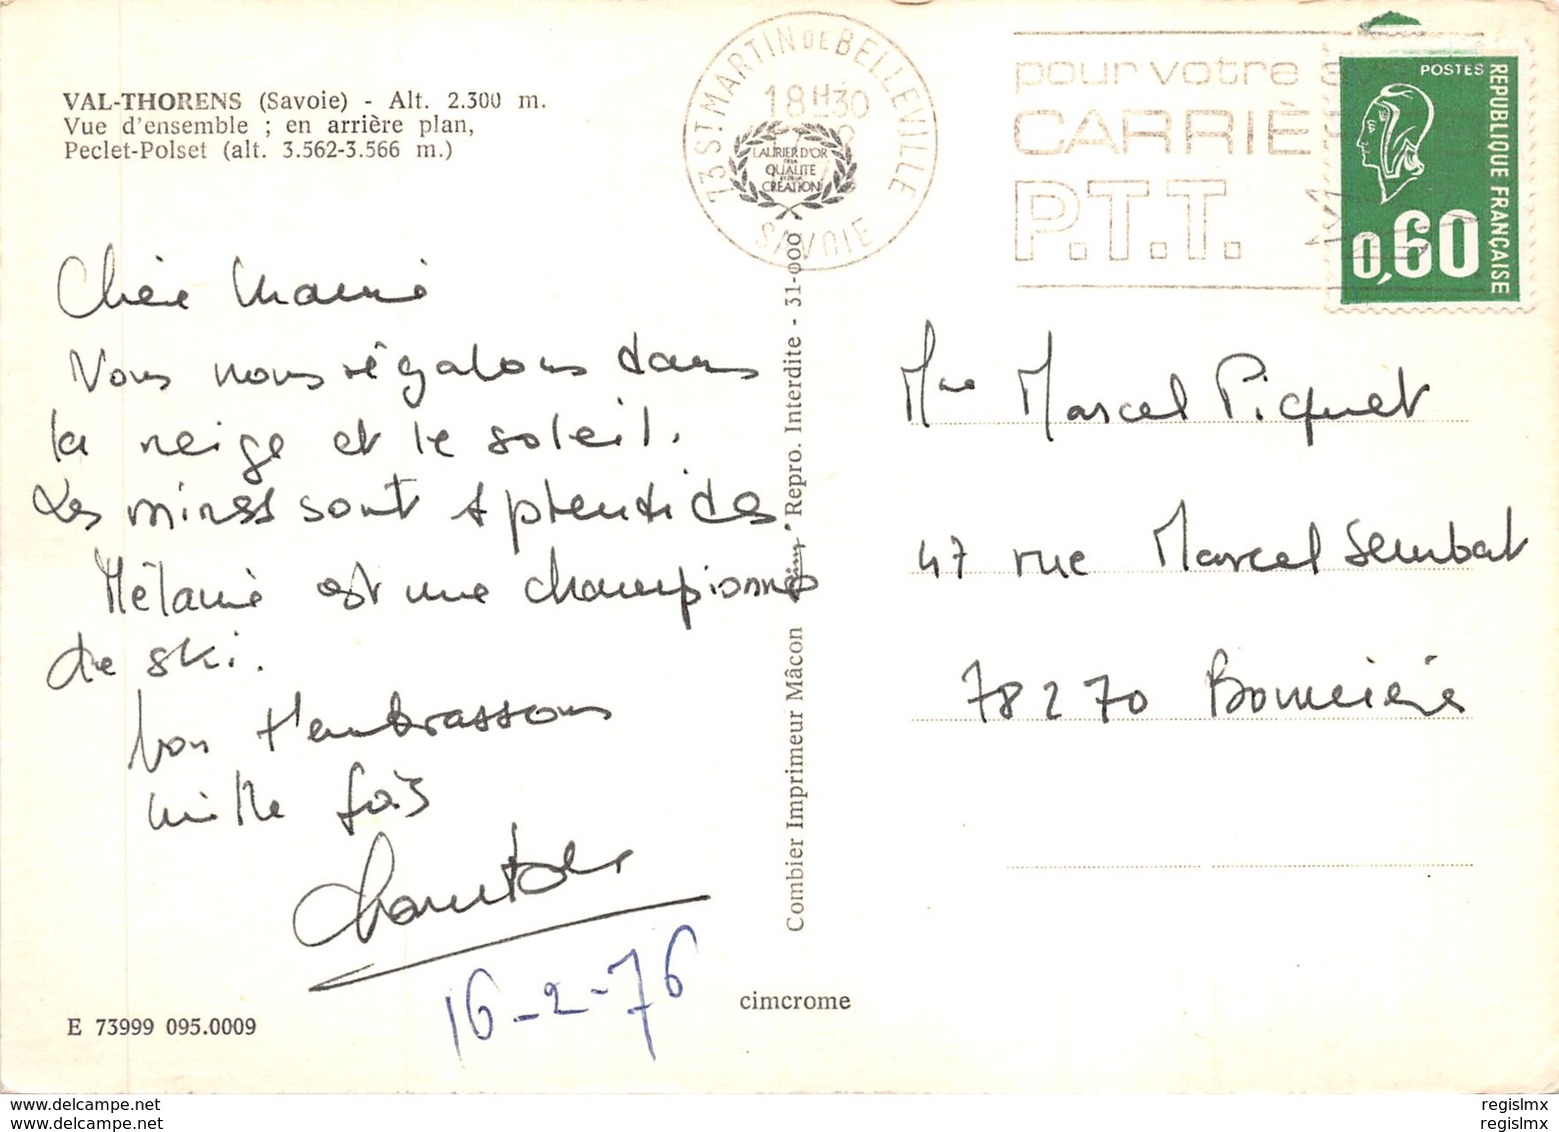 VAL-THORENS (Savoie) - Alt. 2.300 m.
Vue d'ensemble ; en arrière plan,
Peclet-Polset (alt. 3.562-3.566 m.)
73 ST MARTIN DE BELLEVILLE
18H30
SAVOIE
LAURIER D'OR
DE LA
QUALITE
ET DE LA
CREATION
pour votre
CARRIÈ
P.T.T.
POSTES
REPUBLIQUE FRANÇAISE
0,60
Chère Mamie
Nous nous régalons dans
la neige et le soleil.
Les mires sont splendides
Mélanie est une championne
de ski.
Nous t'embrassons
mille fois
Chantal
16-2-76
Mme Marcel Piquet
47 rue Marcel Sembat
78270 Bonnières
Combier Imprimeur Mâcon
"Cim" Repro. Interdite - 31-000
cimcrome
E 73999 095.0009
www.delcampe.net
www.delcampe.net
regislmx
regislmx